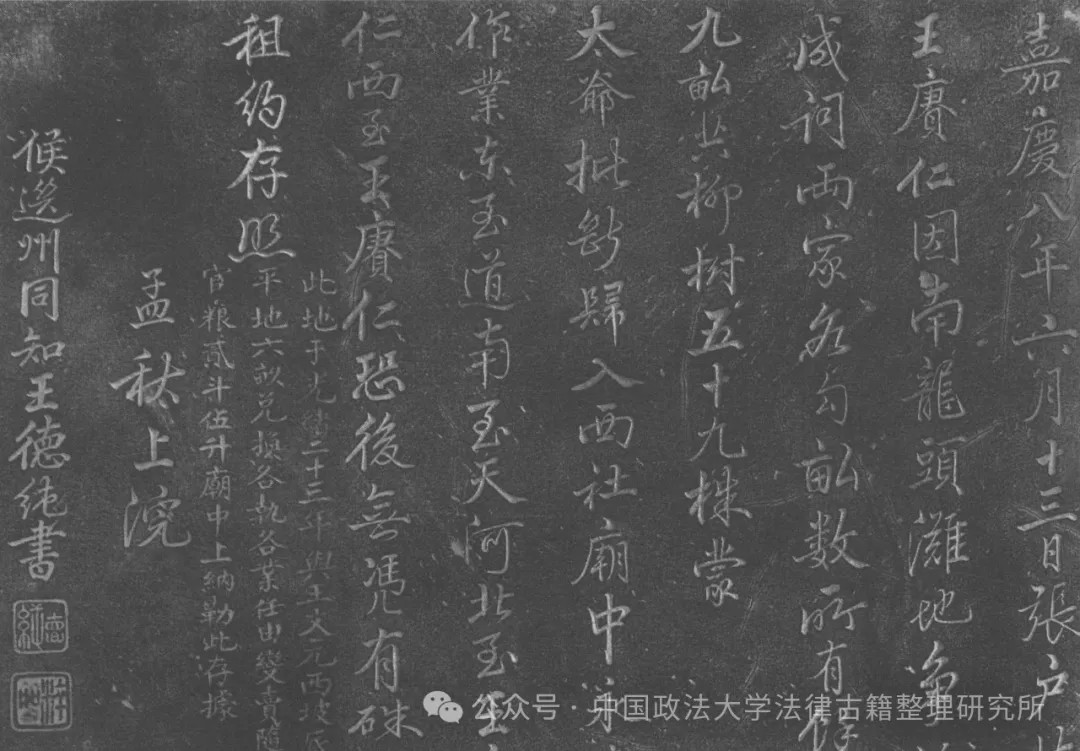 嘉慶八年六月十三日張户
王賡仁因南龍頭灘地爭
成词两家各勾畝数所有餘
九畝共柳樹五十九株蒙
太爺批斷歸入西社廟中永
作業东至道南至天河北至王
仁西至王賡仁恐後無馮凢有硃
租约存照
此地于光緒二十三年與王文元西坡底
平地六畝兑換各执各業任由變賣隨
官粮贰斗伍升廟中上納勒此存據
孟秋上浣
候选州同知王德纯書
德纯
公众号·中国政法大学法律古籍整理研究所